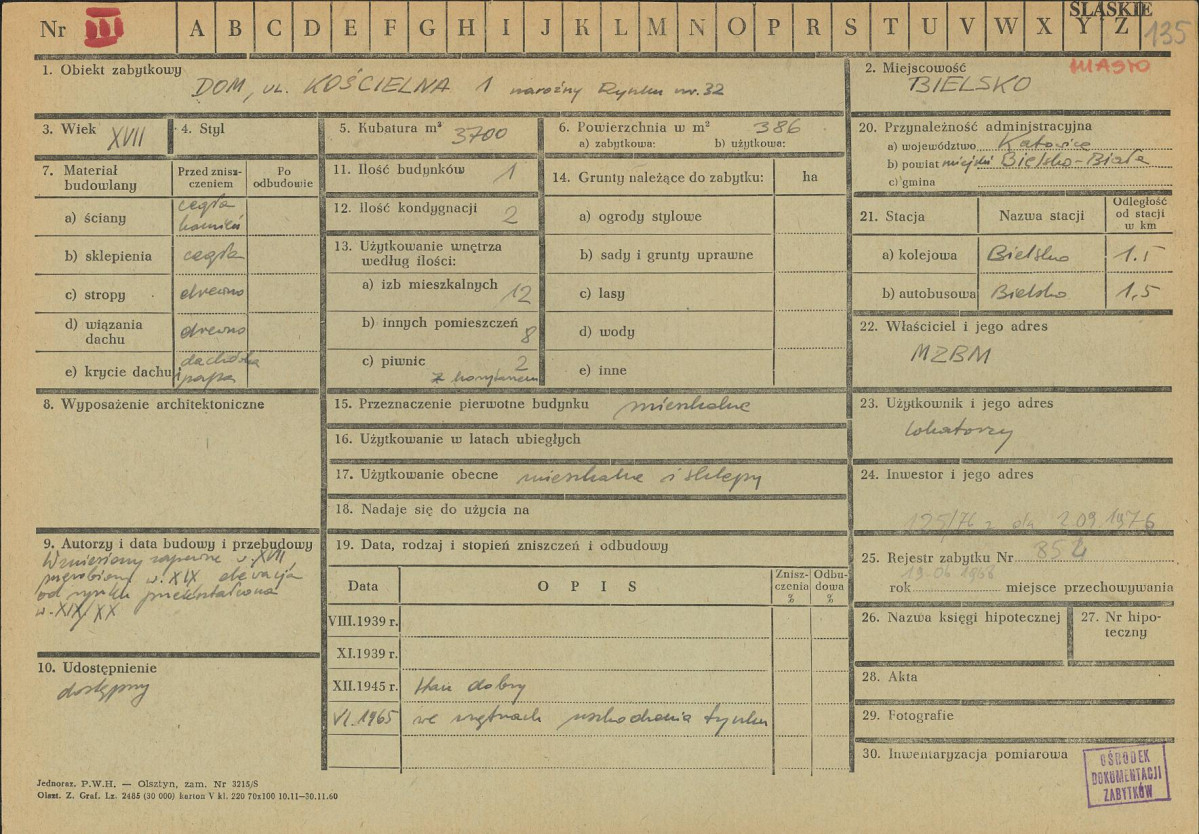 ŚLĄSKIE
Nr III A B C D E F G H I J K L M N O P R S T U V W X Y Z 135
1. Obiekt zabytkowy
DOM, ul. KOŚCIELNA 1 narożny Rynku nr. 32
2. Miejscowość MIASTO
BIELSKO
3. Wiek XVII
4. Styl
5. Kubatura m³ 3700
6. Powierzchnia w m² 386
a) zabytkowa: b) użytkowa:
7. Materiał budowlany
Przed zniszczeniem
Po odbudowie
a) ściany cegła kamień
b) sklepienia cegła
c) stropy drewno
d) wiązania dachu drewno
e) krycie dachu dachówka i papa
8. Wyposażenie architektoniczne
9. Autorzy i data budowy i przebudowy
Wzniesiony zapewne w. XVII,
w. XIX, elewacja
od rynku przekształcona
w. XIX/XX
10. Udostępnienie
dostępny
11. Ilość budynków 1
12. Ilość kondygnacji 2
13. Użytkowanie wnętrza
według ilości:
a) izb mieszkalnych 12
b) innych pomieszczeń 8
c) piwnic 2
z korytarzem
14. Grunty należące do zabytku: ha
a) ogrody stylowe
b) sady i grunty uprawne
c) lasy
d) wody
e) inne
15. Przeznaczenie pierwotne budynku mieszkalne
16. Użytkowanie w latach ubiegłych
17. Użytkowanie obecne mieszkalne i sklepy
18. Nadaje się do użycia na
19. Data, rodzaj i stopień zniszczeń i odbudowy
Data OPIS Zniszczenia % Odbudowa %
VIII.1939 r.
XI.1939 r.
XII.1945 r. Stan dobry
VI.1965 we wnętrzach uszkodzenia tynku
20. Przynależność administracyjna
a) województwo Katowice
b) powiat miejski Bielsko-Biała
c) gmina
21. Stacja Nazwa stacji Odległość od stacji w km
a) kolejowa Bielsko 1.5
b) autobusowa Bielsko 1,5
22. Właściciel i jego adres
MZBM
23. Użytkownik i jego adres
lokatorzy
24. Inwestor i jego adres
125/76 z dn 2.09.1976
25. Rejestr zabytku Nr 854
19.06.1968
rok miejsce przechowywania
26. Nazwa księgi hipotecznej
27. Nr hipoteczny
28. Akta
29. Fotografie
30. Inwentaryzacja pomiarowa
OŚRODEK
DOKUMENTACJI
ZABYTKÓW
Jednoraz. P.W.H. — Olsztyn, zam. Nr 3215/S
Olszt. Z. Graf. Lz. 2485 (30 000) karton V kl. 220 70x100 10.11—30.11.60